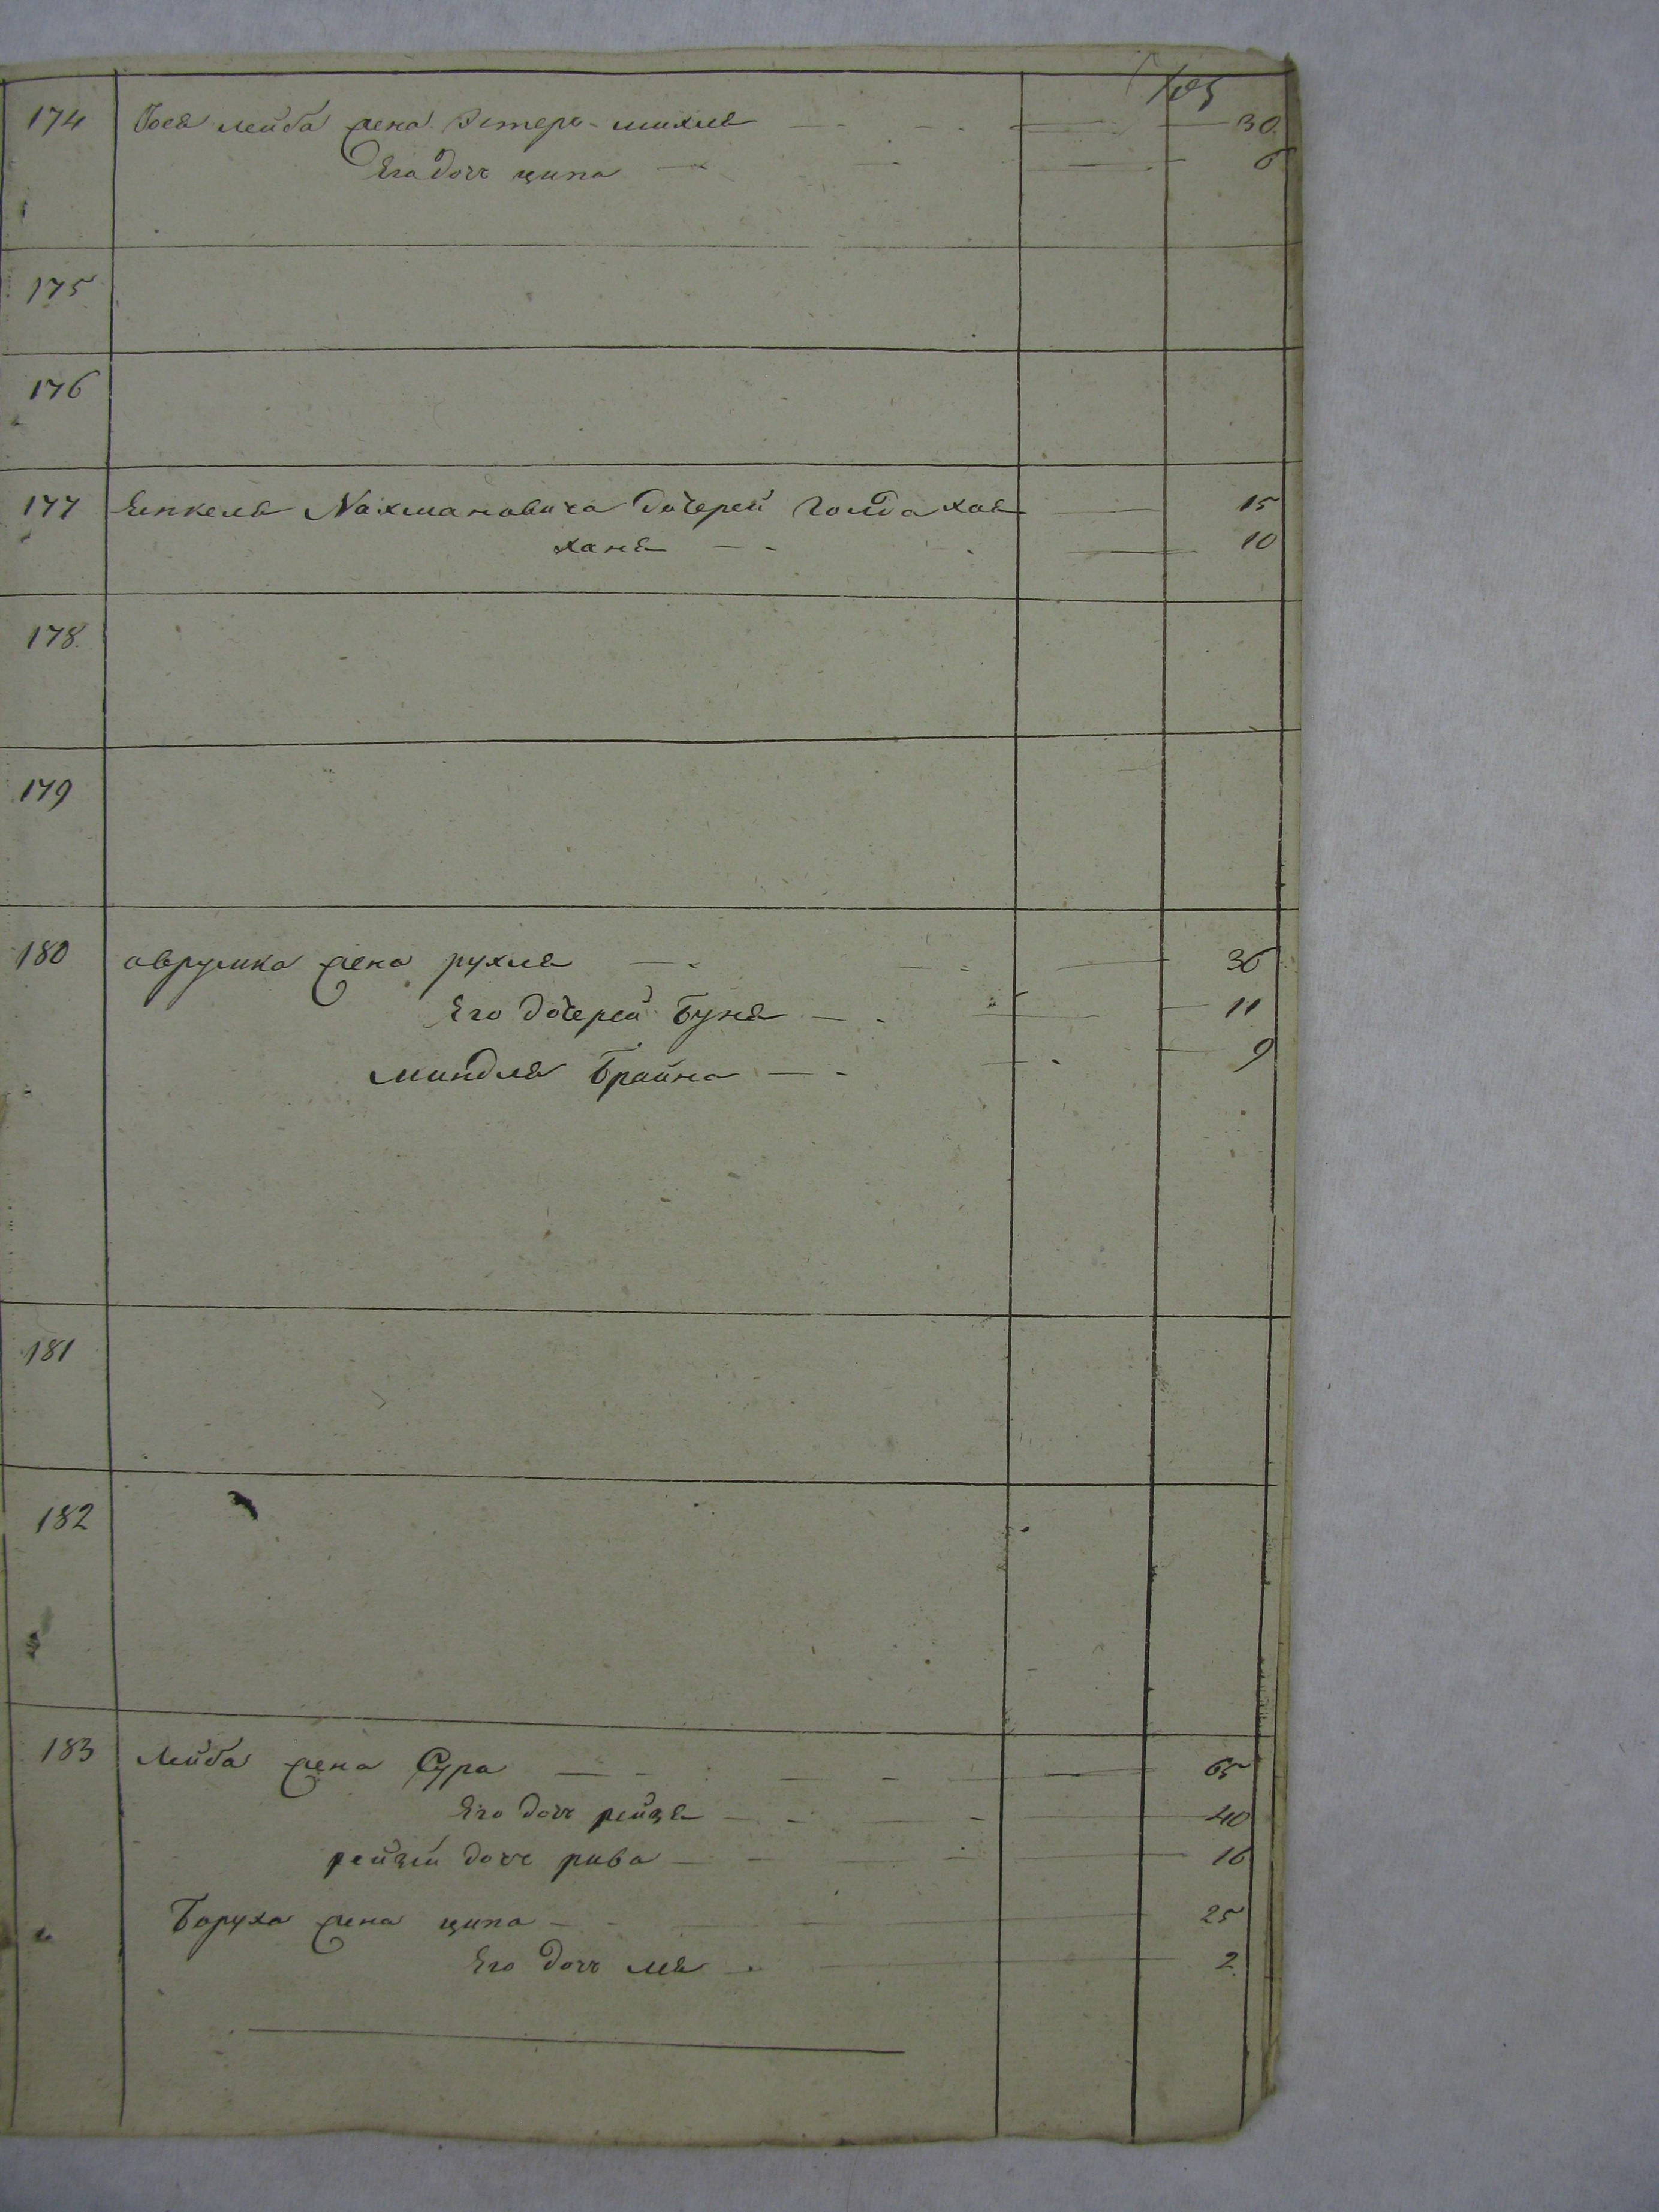 174 лейба жена Эстеръ-михля 30
Его дочь ципа 6
175
176
177 Янкеля Нахмановича дочерей Голда хая 15
хана 10
178
179
180 аврумка жена рухля 36
Его дочерей Буня 11
миндля Брайна 9
181
182
183 Лейба жена Сура 65
Его дочь рейзя 40
рейзей дочь рива 16
Боруха жена ципа 25
Его дочь лея 2